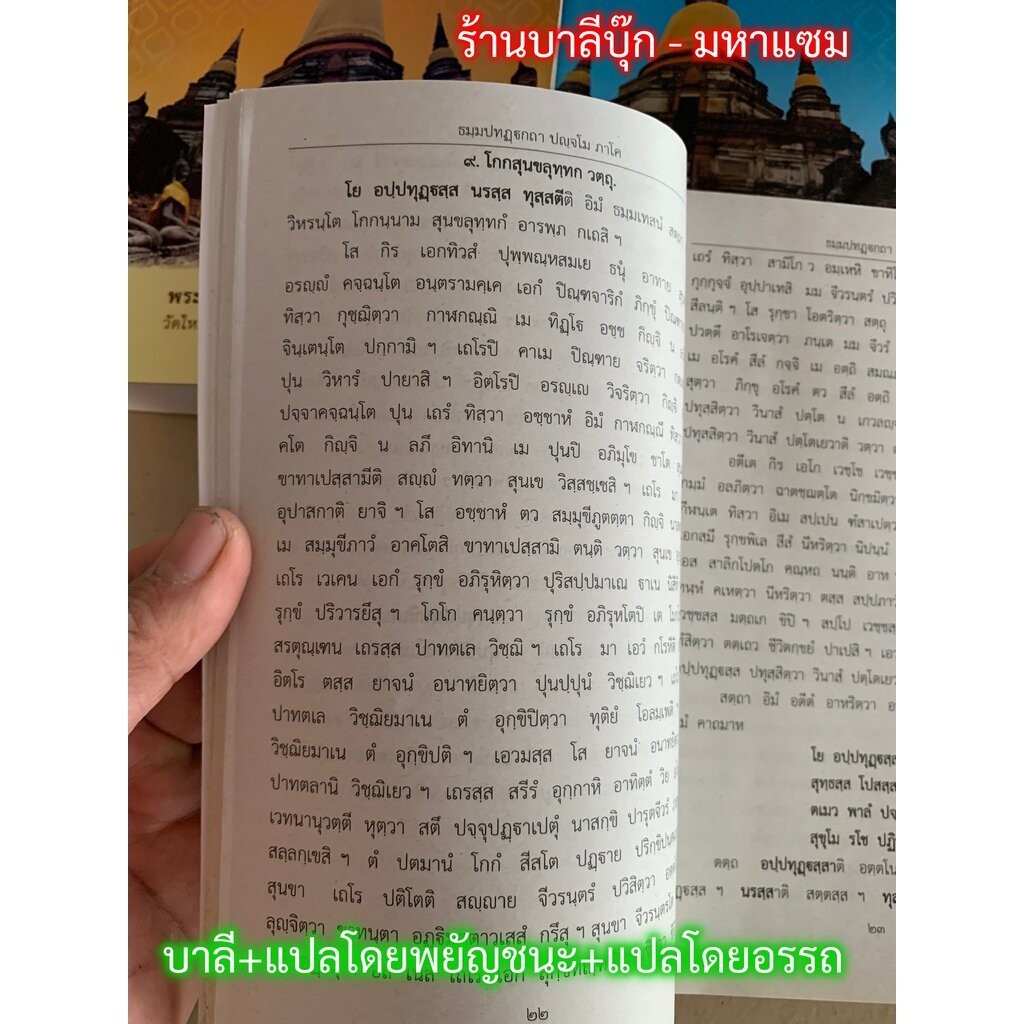 ร้านบาลีบุ๊ก - มหาแซม
ธมฺมปทฏฺฐกถา ปญฺจโม ภาโค
๙. โกกสุนขลุทฺทก วตฺถุ.
โย อปฺปทุฏฺฐสฺส นรสฺส ทุสฺสตีติ อิมํ ธมฺมเทสนํ
วิหรนฺโต โกกนฺนาม สุนขลุทฺทกํ อารพฺภ กเถสิ ฯ
โส กิร เอกทิวสํ ปุพฺพณฺหสมเย ธนุํ อาทาย
อรญฺญํ คจฺฉนฺโต อนฺตรามคฺเค เอกํ ปิณฺฑจาริกํ ภิกฺขุํ
ทิสฺวา กุชฺฌิตฺวา กาฬกณฺณิ เม ทิฏฺโฐ อชฺช กิญฺจิ น
จินฺเตนฺโต ปกฺกามิ ฯ เถโรปิ คาเม ปิณฺฑาย จริตฺวา
ปุน วิหารํ ปายาสิ ฯ อิตโรปิ อรญฺเญ วิจริตฺวา กิญฺจิ
ปจฺจาคจฺฉนฺโต ปุน เถรํ ทิสฺวา อชฺชาหํ อิมํ กาฬกณฺณึ
คโต กิญฺจิ น ลภึ อิทานิ เม ปุนปิ อภิมุโข ชาโต
ขาทาเปสฺสามีติ สญฺญํ ทตฺวา สุนเข วิสฺสชฺเชสิ ฯ เถโร มา
อุปาสกาติ ยาจิ ฯ โส อชฺชาหํ ตว สมฺมุขีภูตตฺตา กิญฺจิ
เม สมฺมุขีภาวํ อาคโตสิ ขาทาเปสฺสามิ ตนฺติ วตฺวา สุนเข
เถโร เวเคน เอกํ รุกฺขํ อภิรุหิตฺวา ปุริสปฺปมาเณ ฐาเน
รุกฺขํ ปริวารยึสุ ฯ โกโก คนฺตฺวา รุกฺขํ อภิรุหโตปิ เต
สรตุณฺเฑน เถรสฺส ปาทตเล วิชฺฌิ ฯ เถโร มา เอวํ กโรหีติ
อิตโร ตสฺส ยาจนํ อนาทยิตฺวา ปุนปฺปุนํ วิชฺฌิเยว ฯ
ปาทตเล วิชฺฌิยมาเน ตํ อุกฺขิปิตฺวา ทุติยํ โอลมฺเพติ
วิชฺฌิยมาเน ตํ อุกฺขิปติ ฯ เอวมสฺส โส ยาจนํ
ปาทตลานิ วิชฺฌิเยว ฯ เถรสฺส สรีรํ อุกฺกาหิ อาทิตฺตํ วิย
เวทนานุวตฺตี หุตฺวา สตึ ปจฺจุปฏฺฐาเปตุํ นาสกฺขิ ปารุตจีวรํ
สลฺลกฺเขสิ ฯ ตํ ปตมานํ โกกํ สีสโต ปฏฺฐาย
สุนขา เถโร ปติโตติ สญฺญาย จีวรนฺตรํ ปวิสิตฺวา
ลุญฺจิตฺวา กรึสุ ฯ สุนขา
๒๒
ธมฺมปทฏฺฐกถา
เถรํ ทิสฺวา สามิโก ว อมฺเหหิ
กุกฺกุจฺจํ อุปฺปาเทสิ มม จีวรนฺตรํ
สีลนฺติ ฯ โส รุกฺขา โอตริตฺวา สตฺถุ
ปวตฺตึ อาโรเจตฺวา ภนฺเต มม จีวรํ
เม อโรคํ สีลํ กจฺจิ เม อตฺถิ
สุตฺวา ภิกฺขุ อโรคํ ตว สีลํ อตฺถิ
ปทุสฺสิตฺวา วินาสํ ปตฺโต น
ปทุสฺสิตฺวา วินาสํ ปตฺโตเยวาติ วตฺวา
อตีเต กิร เอโก เวชฺโช
กมฺมํ อลภิตฺวา ฉาตชฺฌตฺโต
กีฬนฺเต ทิสฺวา อิเม สปฺเปน
เอกสฺมึ รุกฺขพิเล สีสํ นีหริตฺวา นิปนฺนํ
สาลิกโปตโก คณฺหถ นนฺติ อาห
คเหตฺวา นีหริตฺวา ตสฺส
มตฺถเก ขิปิ ฯ สปฺโป
ตตฺเถว ชีวิตกฺขยํ ปาเปสิ ฯ
ปทุสฺสิตฺวา วินาสํ
สตฺถา อิมํ อตีตํ อาหริตฺวา
คาถมาห
โย
สุทฺธสฺส
ตเมว พาลํ
สุขุโม รโช
ตตฺถ อปฺปทุฏฺฐสฺสาติ
ฯ นรสฺสาติ สตฺตสฺส ฯ
๒๓
บาลี+แปลโดยพยัญชนะ+แปลโดยอรรถ